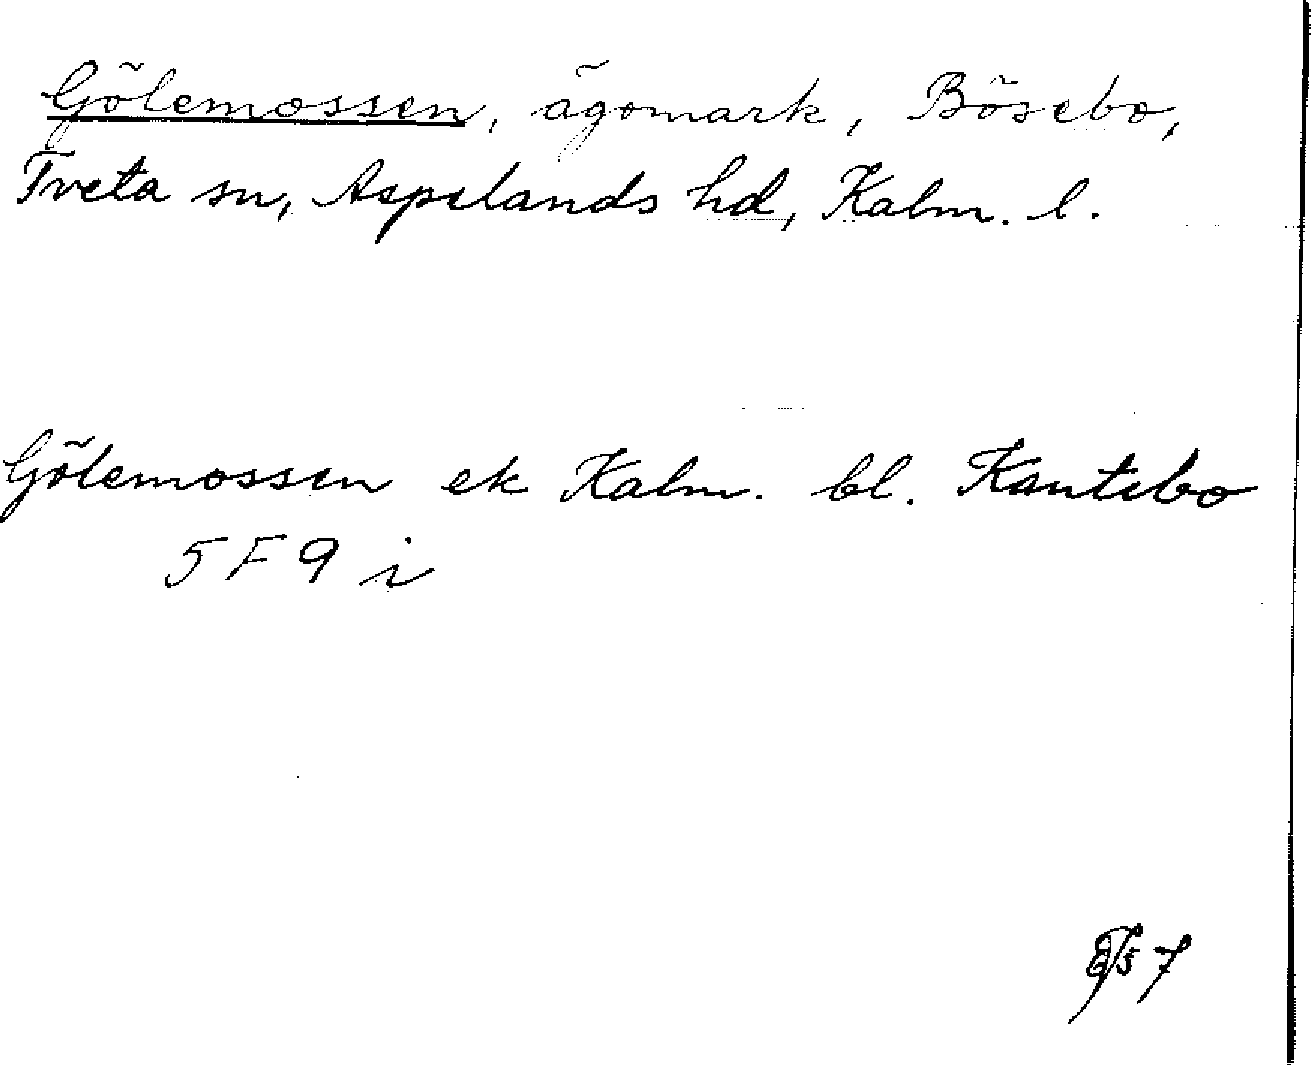 Gölemossen, ägomark, Bösebo,
Tveta sn, Aspelands hd, Kalm. l.
Gölemossen ek Kalm. bl. Kantebo
5F9i